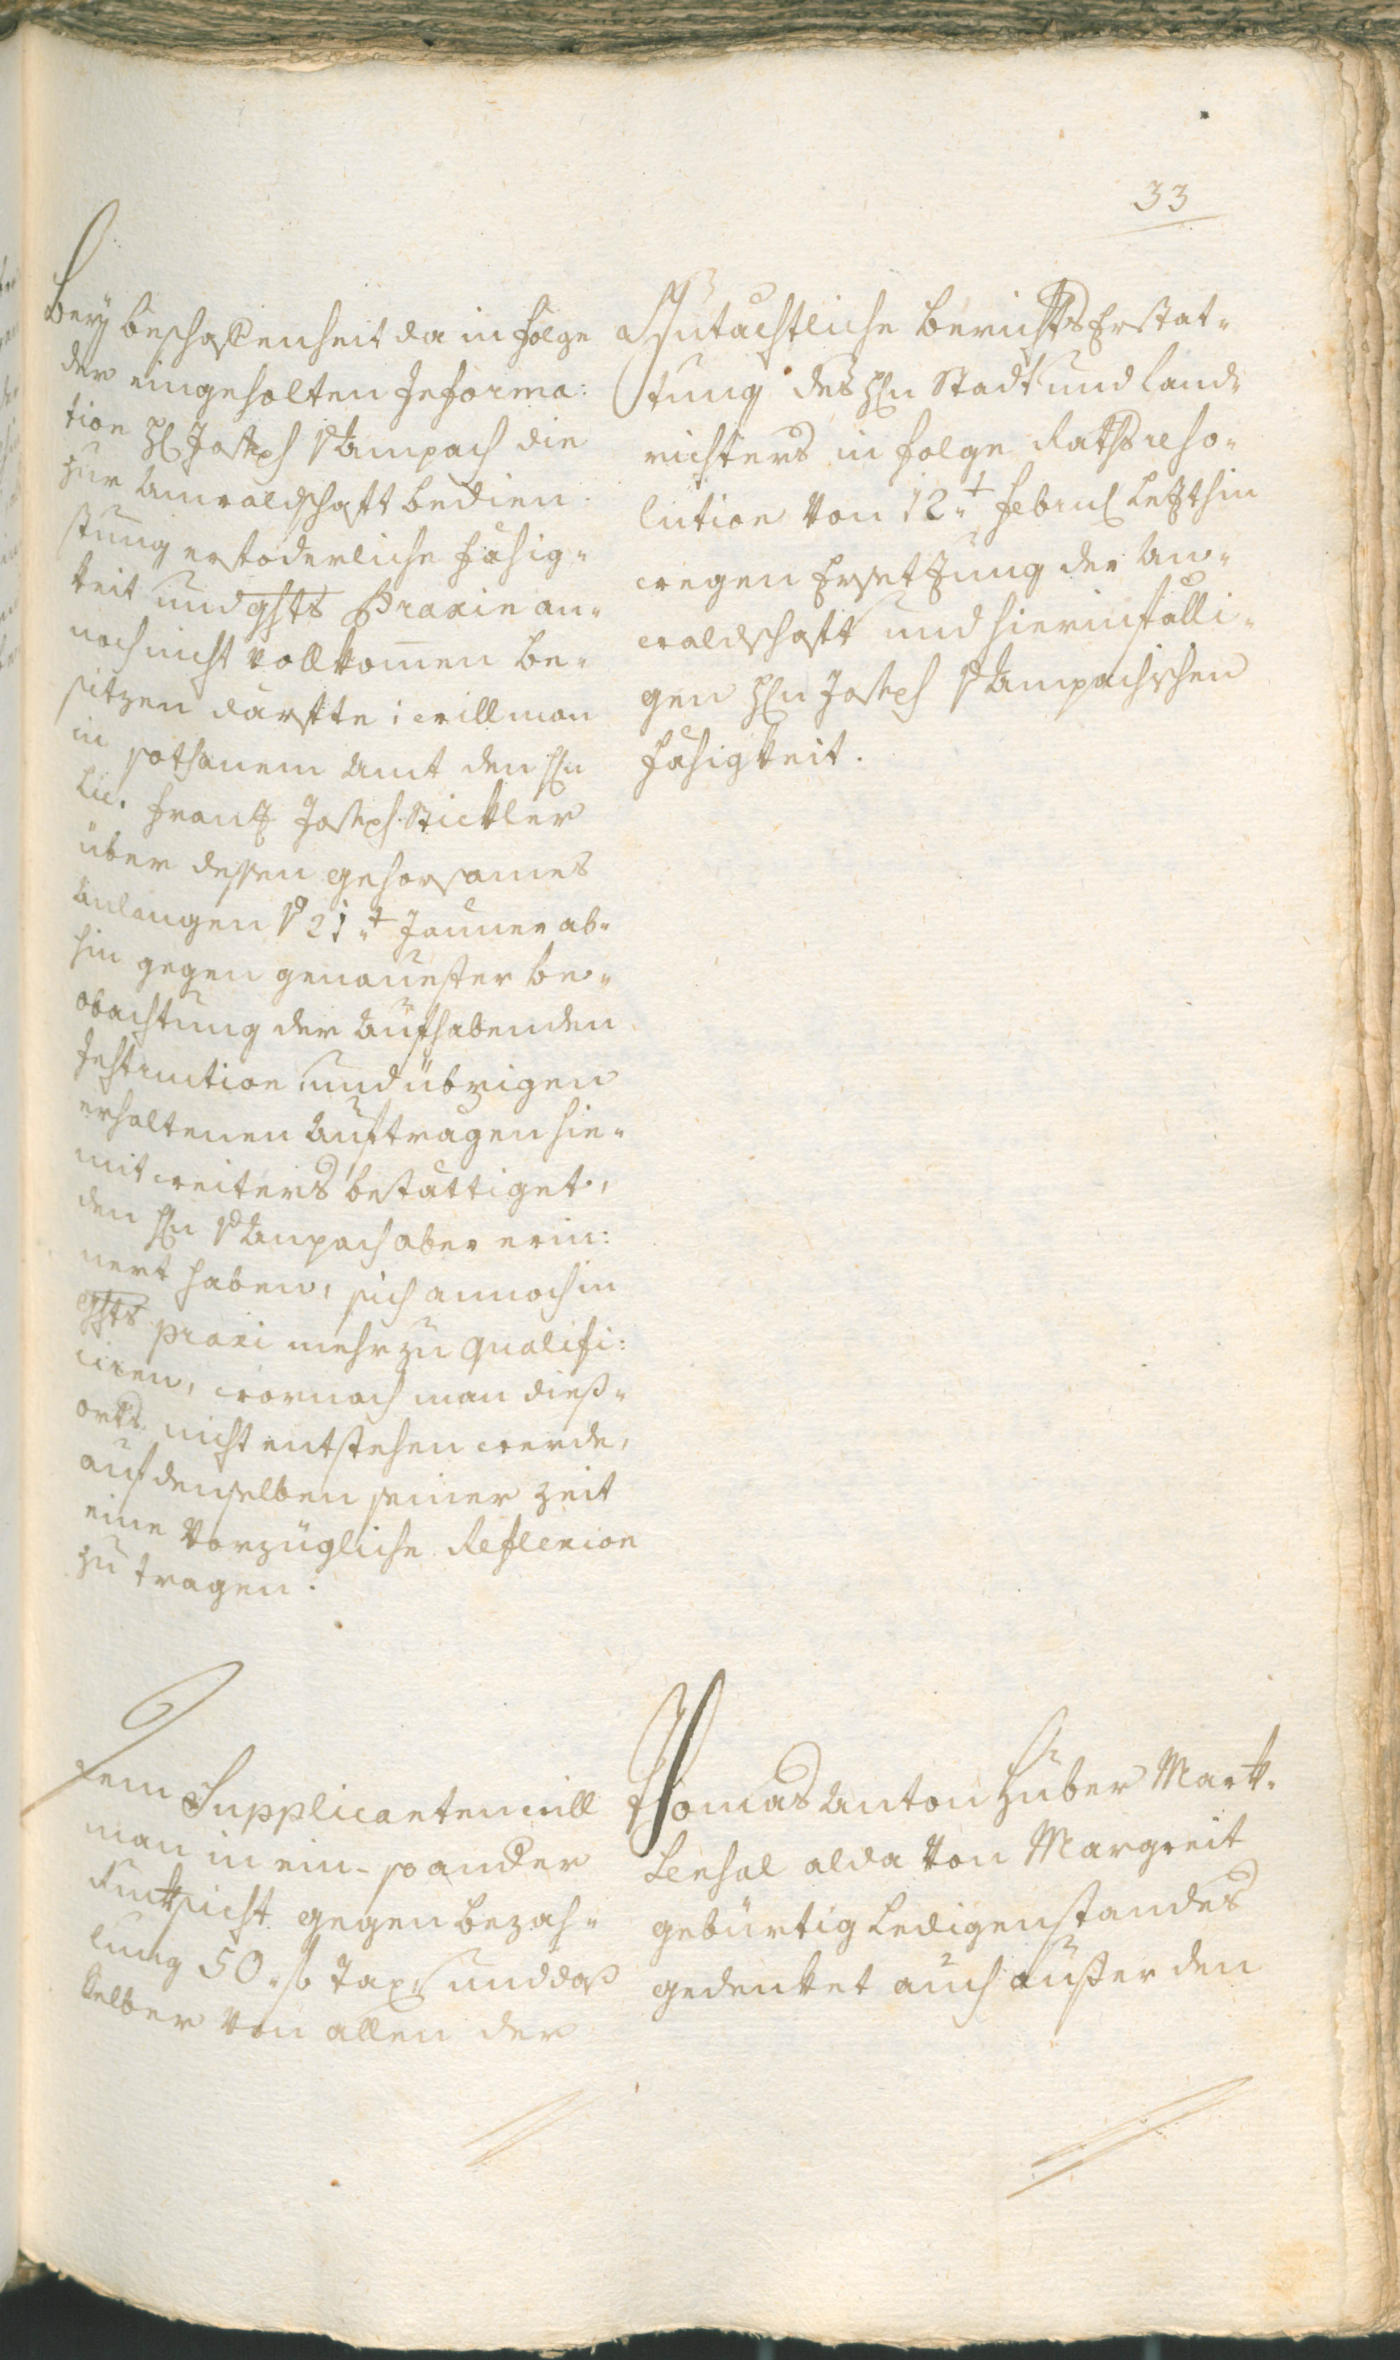 33
Bey beschaffenheit da in folge
der eingeholten Informa:
tion H Joseph v Ampach die
zur Anwaldschaft bedien
stung erfoderliche fähig-
keit und ghts Praxin an-
noch nicht vollkommen be-
sitzen därffte; will man
in sothanem Amt den Hn
Lic. Frantz Joseph Stickler
über dessen gehorsames
Anlangen v 21.t Jenner ab-
hin gegen genauester be-
obachtung der Aufhabenden
Instruction und übrigen
erhaltenen Aufträgen hie-
mit weiters bestättiget,
den Hn v Ampach aber erin:
nert haben, sich annoch in
ghts praxi mehr zu qualifi:
ciren, wornach man dieß-
orts nicht entstehen werde,
auf denselben seiner Zeit
eine vorzügliche Reflexion
zu tragen.
Gutachtliche Berichts Erstat-
tung des Hn Stadt und Land-
richters in folge Raths reso-
lution von 12.t Febru letzthin
wegen Ersetzung der An-
waldschaft und hierinfälli-
gen Hn Joseph v Ampachischen
fähigkeit.
Dem Supplicanten will
man in ein- so ander
Rucksicht gegen Bezah-
lung 50 f Tax, und daß
Selber von allen der
Thomas Anton Huber Mark-
Lenhal alda von Margreit
gebürtig Ledigenstandes
gedenket auch außer den